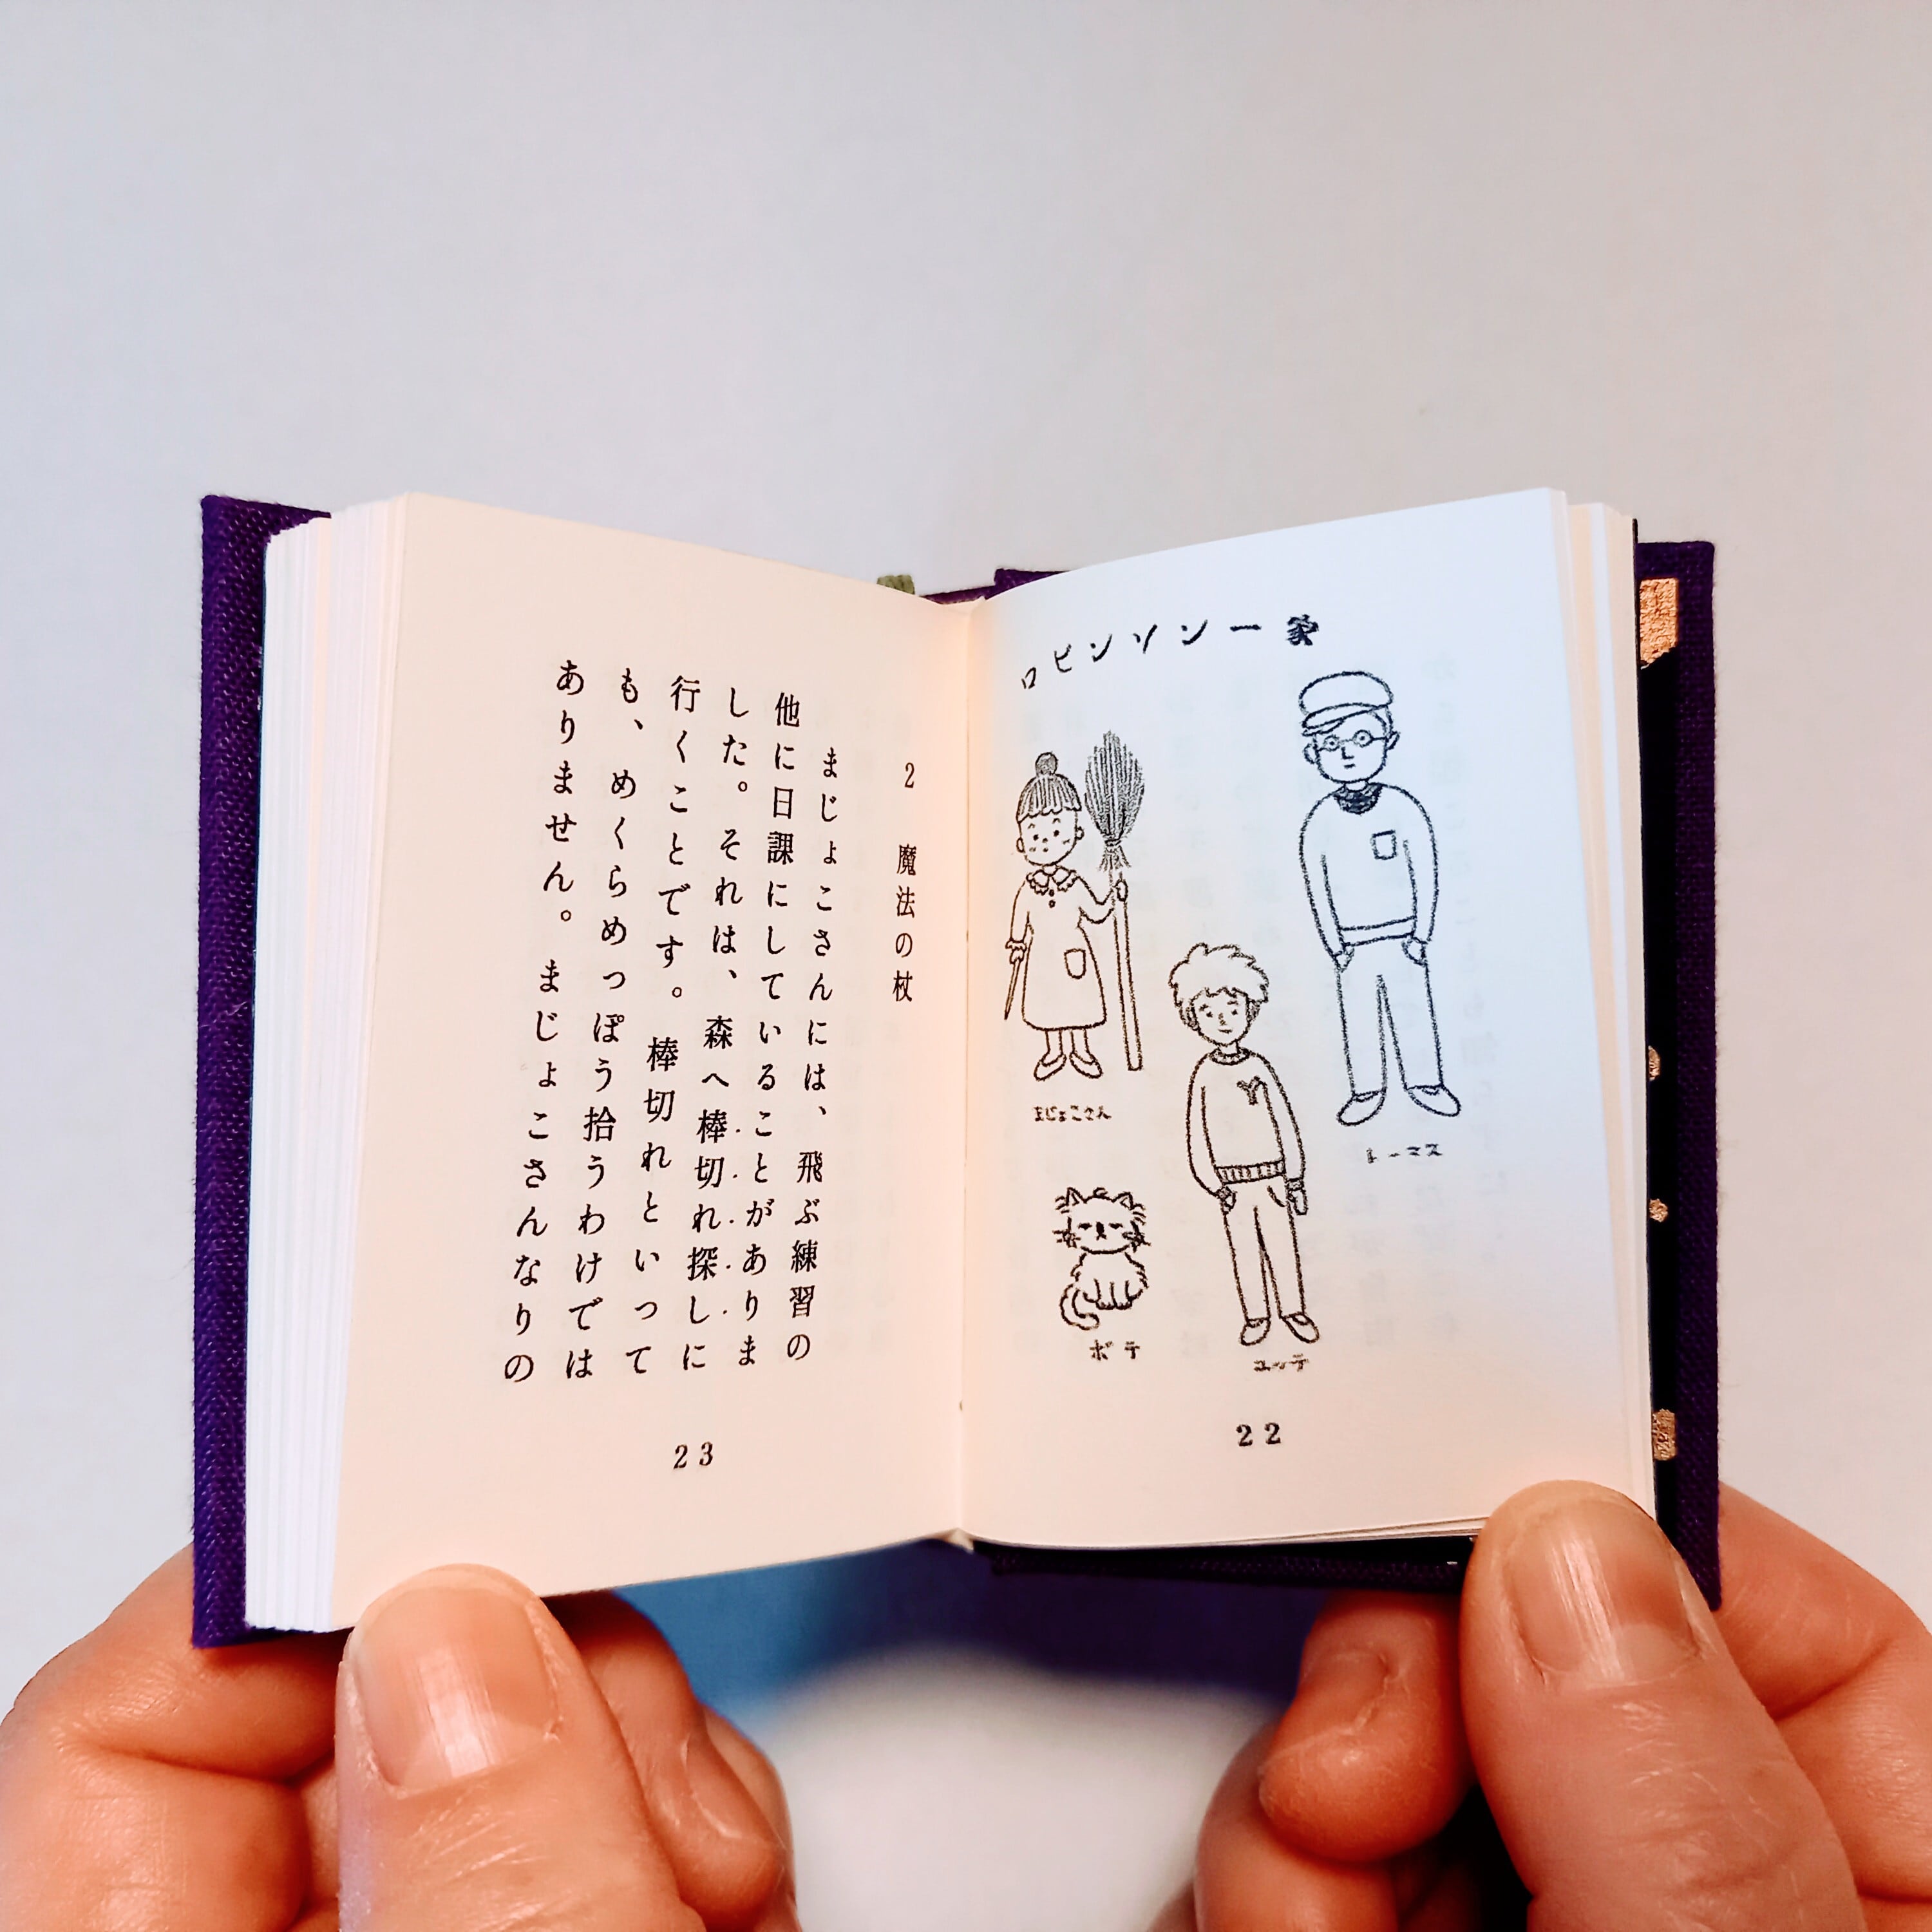 ロビンソン一家
まじょこさん
トーマス
ボテ
ユッテ
22
2 魔法の杖
まじょこさんには、飛ぶ練習の
他に日課にしていることがありま
した。それは、森へ棒切れ探しに
行くことです。棒切れといって
も、めくらめっぽう拾うわけでは
ありません。まじょこさんなりの
23